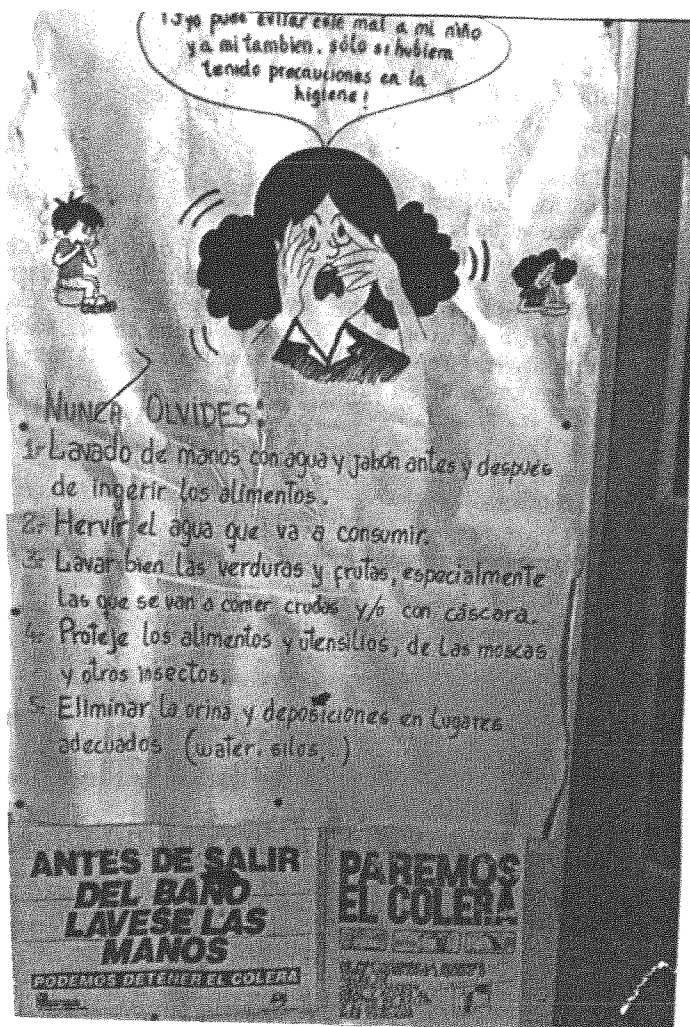 ¡Si yo pude evitar este mal a mi niño
y a mi tambien. sólo si hubiera
tenido precauciones en la
higiene!
NUNCA OLVIDES:
1.- Lavado de manos con agua y jabón antes y después
de ingerir los alimentos.
2.- Hervir el agua que va a consumir.
3.- Lavar bien las verduras y frutas, especialmente
las que se van a comer crudas y/o con cáscara.
4.- Proteje los alimentos y utensilios, de las moscas
y otros insectos.
5.- Eliminar la orina y deposiciones en lugares
adecuados (water, silos,.)
ANTES DE SALIR
DEL BAÑO
LAVESE LAS
MANOS
PODEMOS DETENER EL COLERA
PAREMOS
EL COLERA